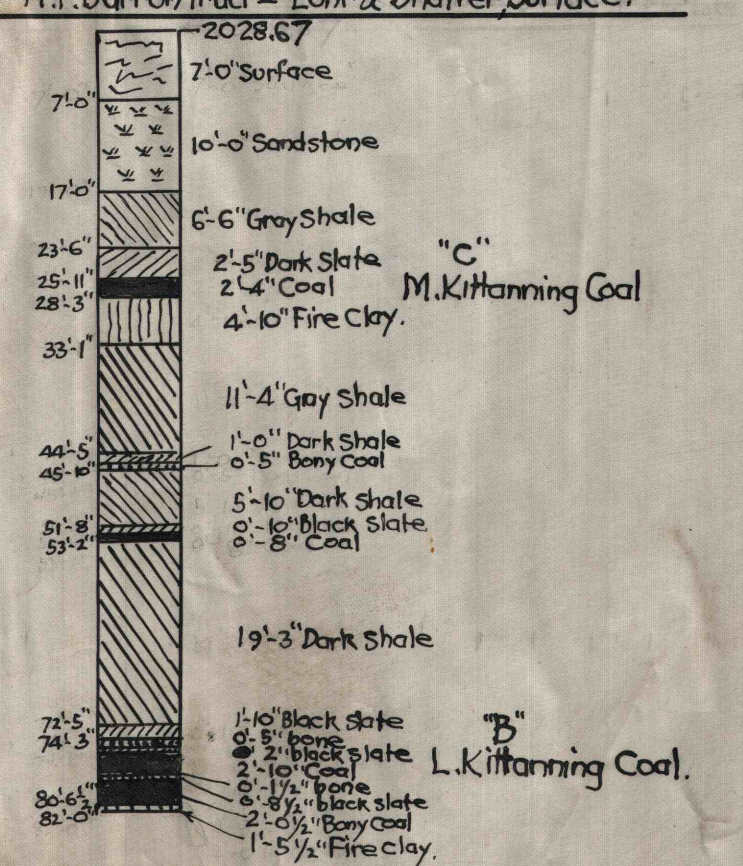 2028.67
7'-0" Surface
7'-0"
10'-0" Sandstone
17'-0"
6'-6" Gray Shale
23'-6"
2'-5" Dark Slate
"C"
25'-11"
2'-4" Coal
M. Kittanning Coal
28'-3"
4'-10" Fire Clay.
33'-1"
11'-4" Gray Shale
44'-5"
1'-0" Dark Shale
45'-10"
0'-5" Bony Coal
5'-10" Dark Shale
51'-8"
0'-10" Black Slate
53'-2"
0'-8" Coal
19'-3" Dark Shale
72'-5"
1'-10" Black Slate
"B"
74'-3"
0'-5" bone
2" black slate
2'-10" Coal
L. Kittanning Coal.
0'-1 1/2" bone
80'-6 1/2"
0'-8 1/2" black slate
82'-0"
2'-0 1/2" Bony Coal
1'-5 1/2" Fire Clay.